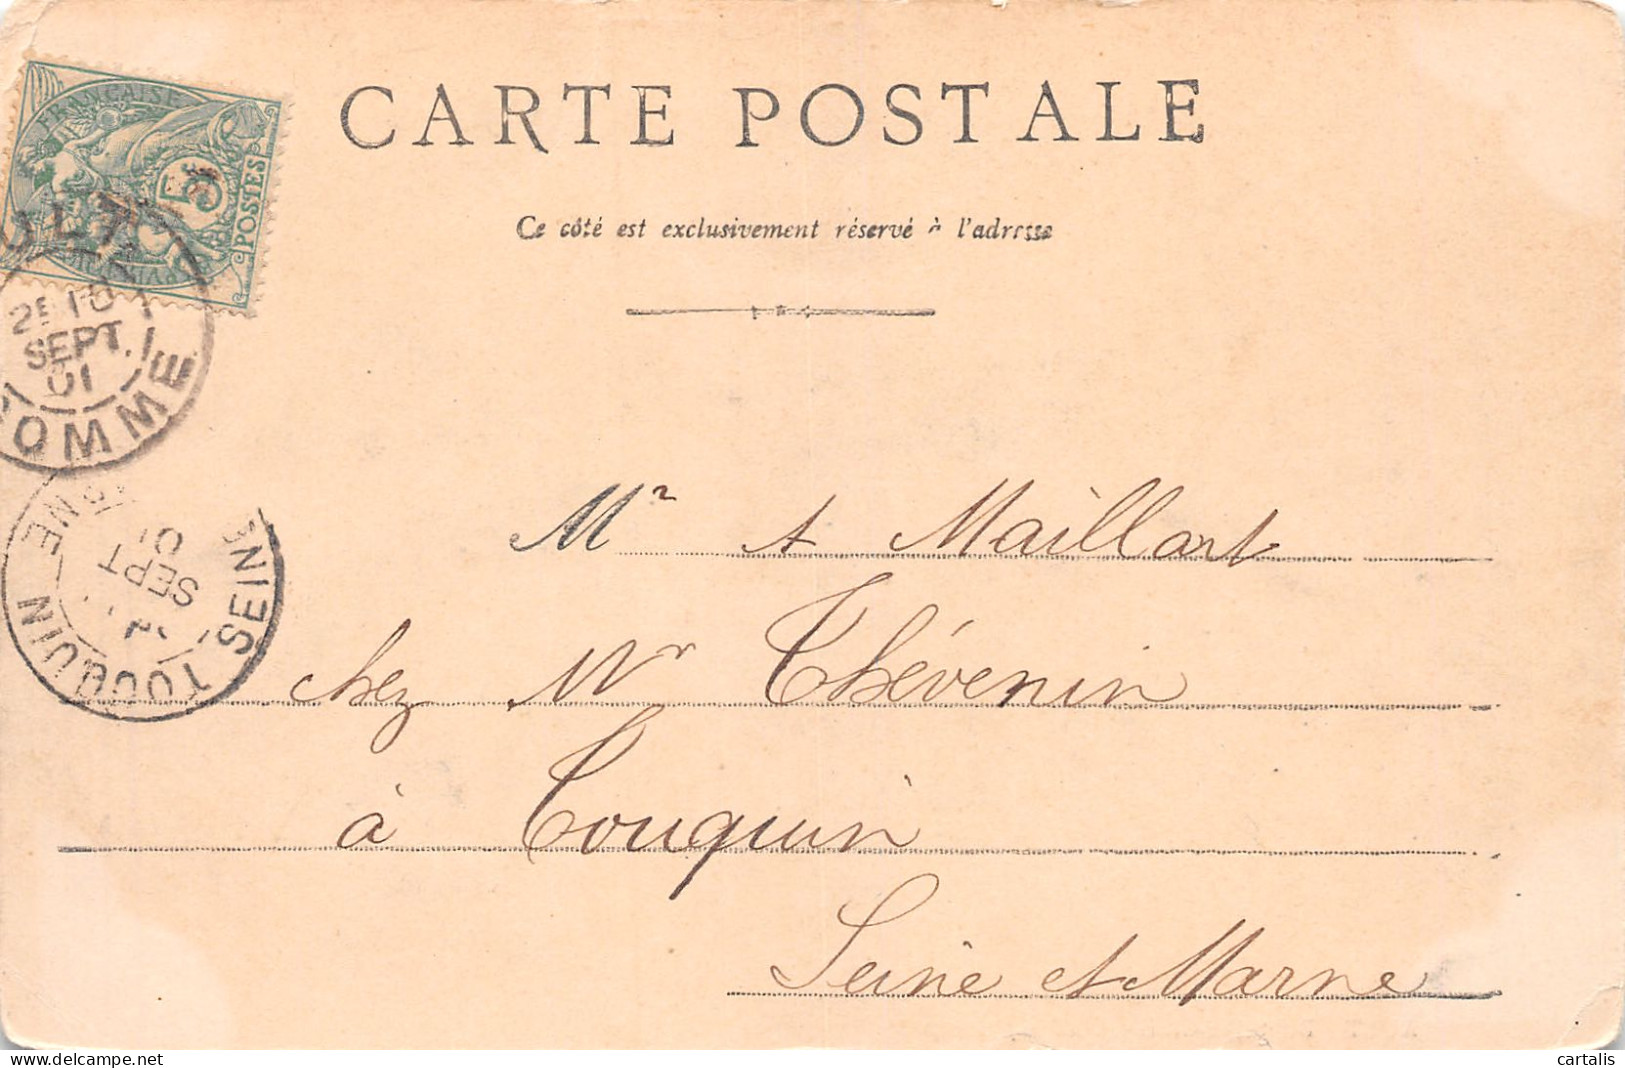 CARTE POSTALE
Ce côté est exclusivement réservé à l'adresse
FRANÇAISE
5
POSTES
AULT
2E 10
SEPT.
01
SOMME
TOUQUIN
SEINE
SEPT
01
Mr A Maillart
chez Mr Thévenin
à Touquin
Seine et Marne
cartalis